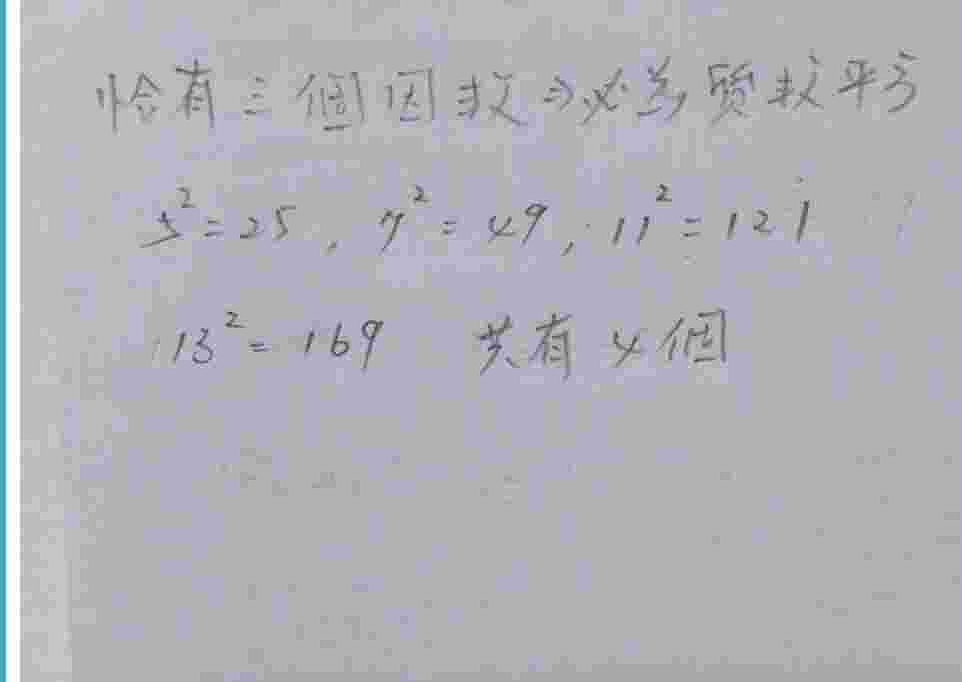 恰有三個因數⇒必為質數平方
5²=25, 7²=49, 11²=121
13²=169 共有4個